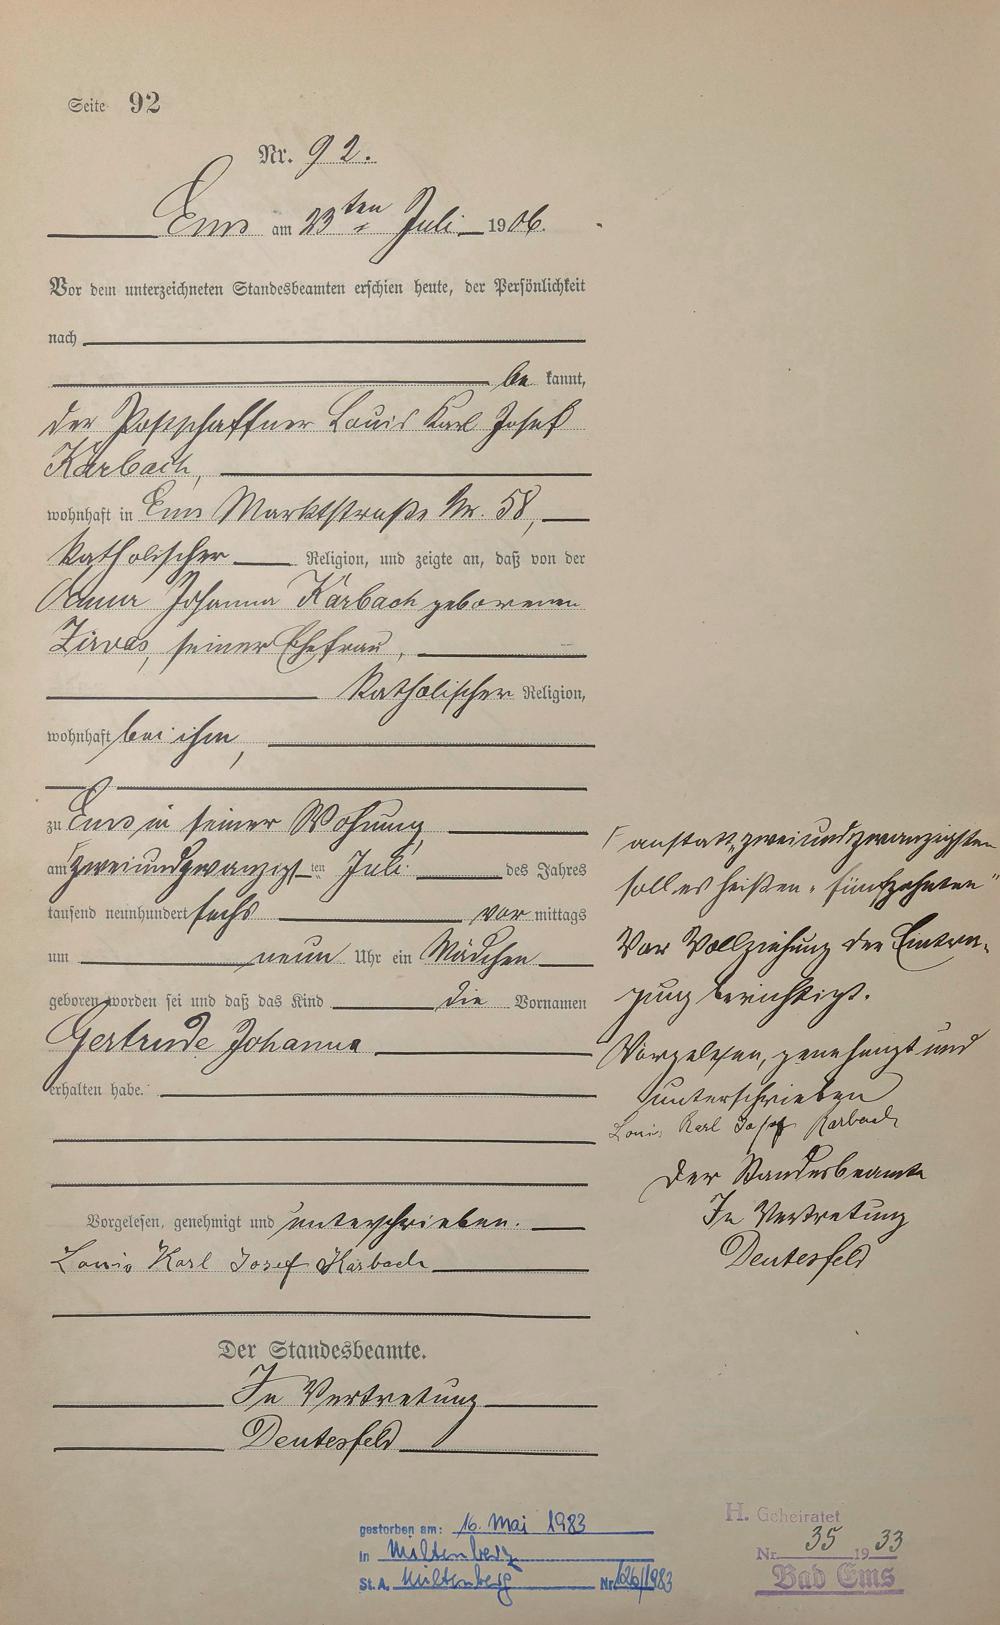 Seite 92
Nr. 92.
Ems am 23ten Juli 1906.
Vor dem unterzeichneten Standesbeamten erschien heute, der Persönlichkeit
nach
be kannt,
der Postschaffner Louis Karl Josef
Karbach,
wohnhaft in Ems Marktstraße Nr. 58,
katholischer Religion, und zeigte an, daß von der
Anna Johanna Karbach geborenen
Zirvas, seiner Ehefrau,
katholischer Religion,
wohnhaft bei ihm,
zu Ems in seiner Wohnung
am zweiundzwanzigsten Juli des Jahres
tausend neunhundert sechs vor mittags
um neun Uhr ein Mädchen
geboren worden sei und daß das Kind die Vornamen
Gertrude Johanna
erhalten habe.
Vorgelesen, genehmigt und unterschrieben.
Louis Karl Josef Karbach
Der Standesbeamte.
In Vertretung
Deutesfeld
anstatt „zweiundzwanzigsten
soll es heißen „fünfzehnten"
Vor Vollziehung der Eintra-
gung berichtigt.
Vorgelesen, genehmigt und
unterschrieben
Louis Karl Josef Karbach
Der Standesbeamte
In Vertretung
Deutesfeld
gestorben am: 16. Mai 1983
in Miltenberg
St.A. Miltenberg Nr. 126/1983
H. Geheiratet
Nr. 35 1933
Bad Ems